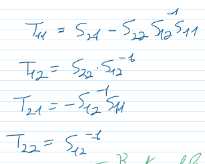 T₁₁ = S₂₁ - S₂₂ S₁₂⁻¹ S₁₁
T₁₂ = S₂₂ · S₁₂⁻¹
T₂₁ = -S₁₂⁻¹ S₁₁
T₂₂ = S₁₂⁻¹